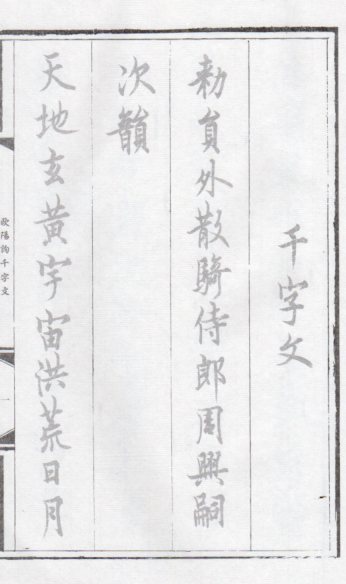 千字文
勑員外散騎侍郎周興嗣
次韻
天地玄黃宇宙洪荒日月
歐陽詢千字文